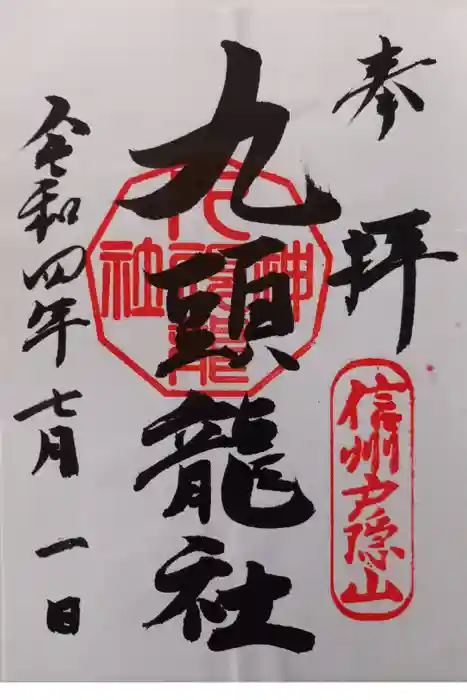 奉拝
信州戸隠山
九頭龍社
九頭龍
神
社
令和四年七月一日